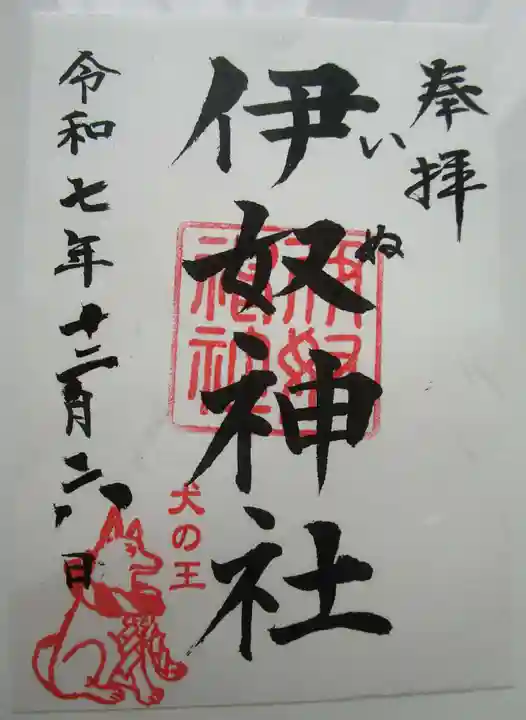 奉拝
伊奴神社
いぬ
犬の王
令和七年十二月二八日